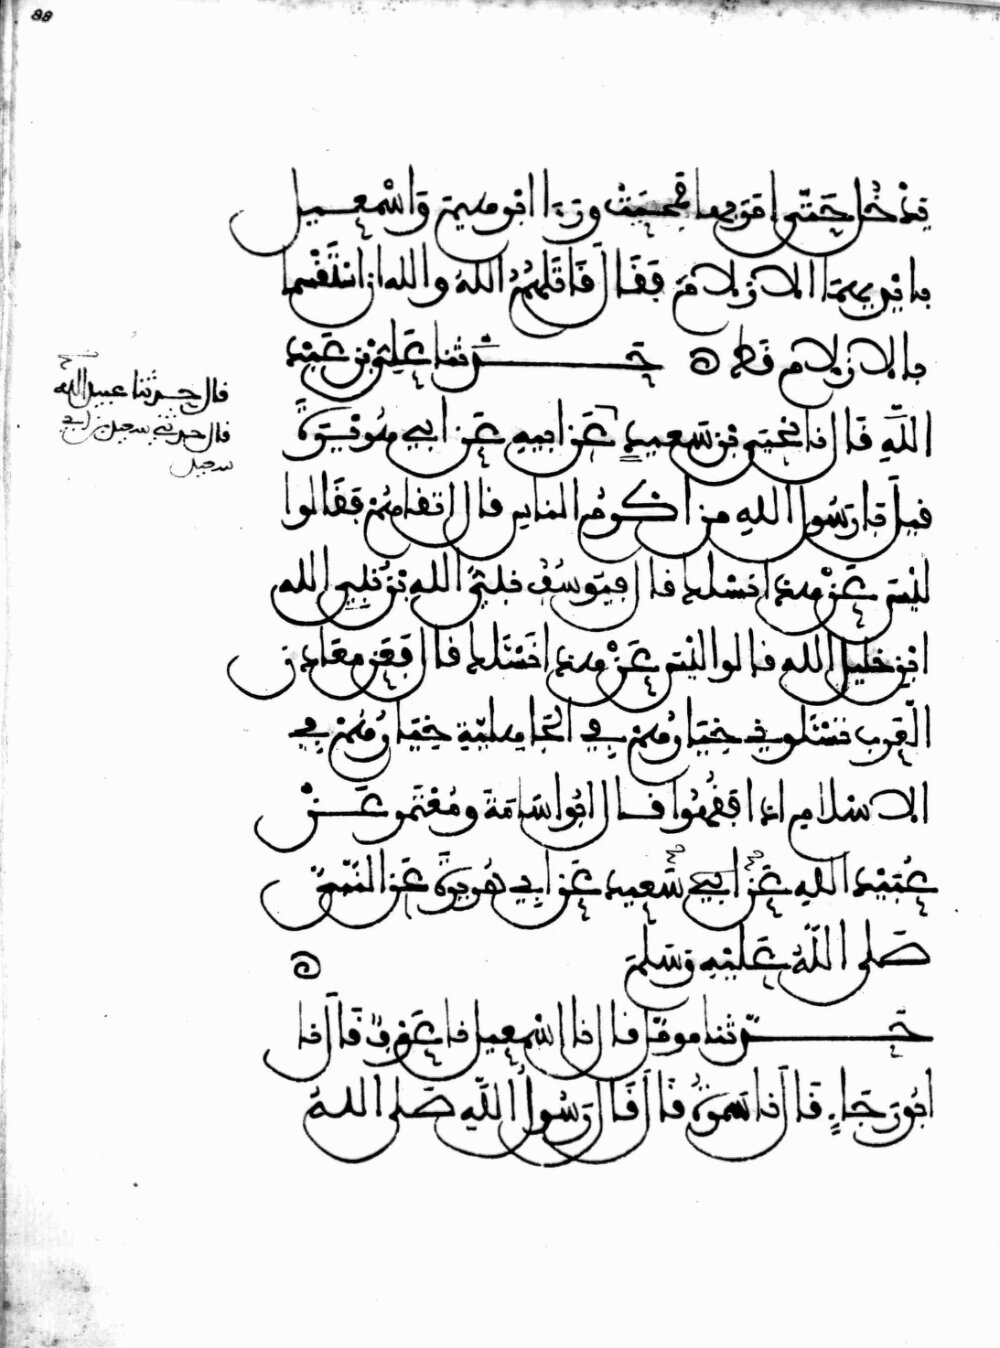 88
يَدْخُل حَتَّى امَرَ بها فَمُحِيَتْ ورَءَا ابرهيمَ وَاسْمٰعيل
بايْديهمَا الازلامَ فقَالَ قَاتلهُمُ اللهُ واللهِ ان اسْتَقْسَما
بالازلامِ قَط ه حَــدثنا عَلِىُّ بن عَبْد
اللَّهِ قَالَ نا يحْيَى بن سَعيدٍ عَن ابيهِ عَن ابي هُرَيْرَةَ
قيلَ يا رَسُولَ اللهِ من اكرمُ الناسِ قال اتقاهُمْ فقَالوا
ليْسَ عَنْ هذا نسْئلك قال فيُوسُفُ نَبيُّ اللهِ بنُ نَبِي اللهِ
ابن خليل الله قالوا ليْسَ عَنْ هذا نَسْئَلك قال فَعَن مَعَادِن
العَربِ تَسْئَلوني خِيَارُهُمْ فِي الجَاهليّةِ خِيَارُهُمْ فِي
الاسْلامِ اذا فَقُهُوا قال ابُو اسَامَةَ ومُعْتَمر عَنْ
عُبَيْد اللهِ عَنْ ابي سَعيد عَن ابِي هُريرةَ عَن النَّبِيِّ
صَلى اللَّهُ عَليْهِ وَسَلمَ ه
حَــدّثنا مومّل قال نا اسْمٰعيل نا عَوْفٌ قَالَ نا
ابُو رَجَاءٍ قَالَ نا سَمُرَةُ قَالَ قَالَ رَسُولُ اللَّهِ صَلى اللهُ
قال حدثنا عبيد الله
قال حدثني سعيد بن ابي
سعيد